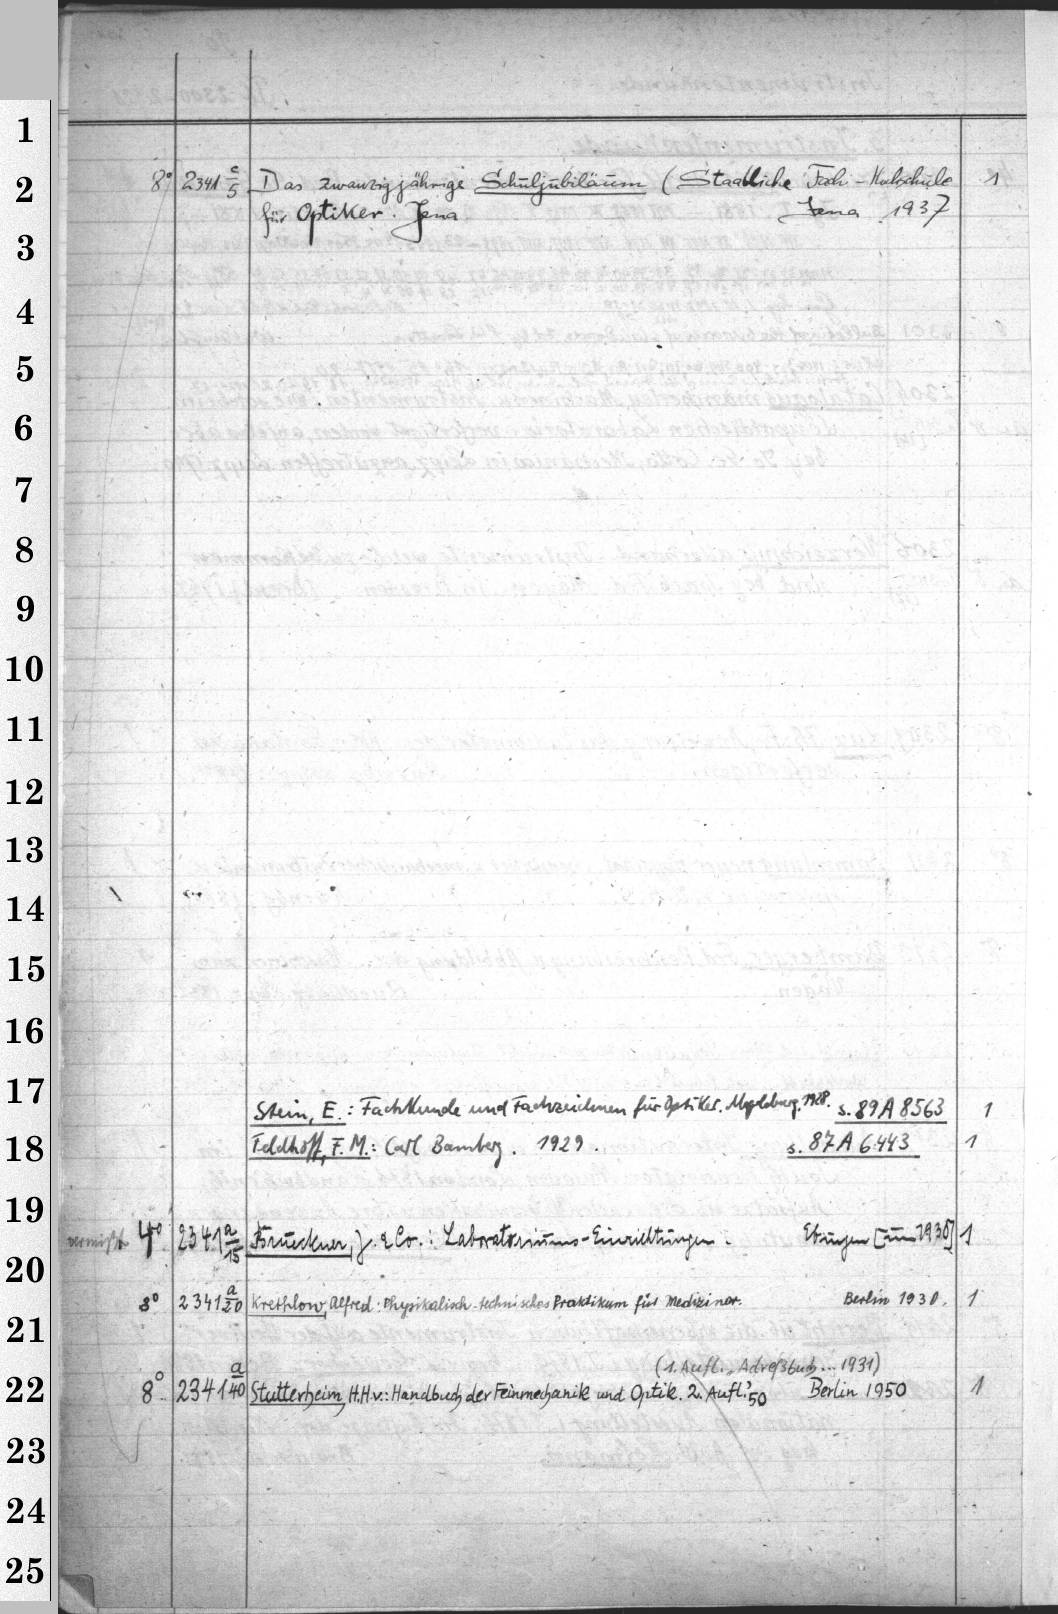 1
2
8° 2341 c/5 Das zwanzigjährige Schuljubiläum (Staatliche Fach-Hochschule 1
für Optiker. Jena Jena 1937
3
4
5
6
7
8
9
10
11
12
13
14
15
16
17
Stein, E.: Fachkunde und Fachzeichnen für Optiker. Magdeburg. 1928. s. 89 A 8563 1
18
Feldhoff, F. M.: Carl Bamberg. 1929. s. 87 A 6443 1
19
vermißt 4° 2341 a/15 Brueckner, J. & Co.: Laboratoriums-Einrichtungen. Ebingen [um 1930] 1
20
8° 2341 a/20 Krethlow, Alfred: Physikalisch-technisches Praktikum für Mediziner. Berlin 1930. 1
21
(1. Aufl., Adreßbuch... 1931)
22
8° 2341 a/40 Stutterheim, H.H.v.: Handbuch der Feinmechanik und Optik. 2. Aufl. '50 Berlin 1950 1
23
24
25